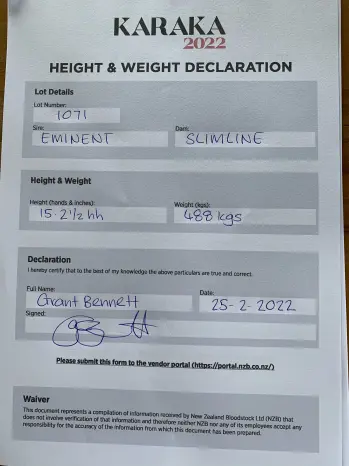 KARAKA
2022
HEIGHT & WEIGHT DECLARATION
Lot Details
Lot Number:
1071
Sire: Dam:
EMINENT SLIMLINE
Height & Weight
Height (hands & inches): Weight (kgs):
15.2½hh 488kgs
Declaration
I hereby certify that to the best of my knowledge the above particulars are true and correct.
Full Name: Date:
Grant Bennett 25-2-2022
Signed:
Please submit this form to the vendor portal (https://portal.nzb.co.nz/)
Waiver
This document represents a compilation of information received by New Zealand Bloodstock Ltd (NZB) that
does not involve verification of that information and therefore neither NZB nor any of its employees accept any
responsibility for the accuracy of the information from which this document has been prepared.